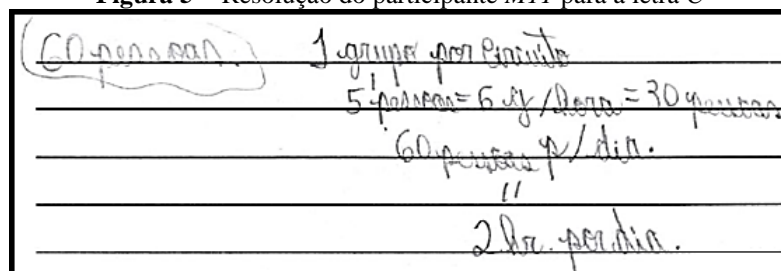 Figura 5 – Resolução do participante M11 para a letra C
60 pessoas. 1 grupo por circuito
5 pessoas = 6 g/hora = 30 pessoas
60 pessoas p/ dia.
"
2 hr. por dia.